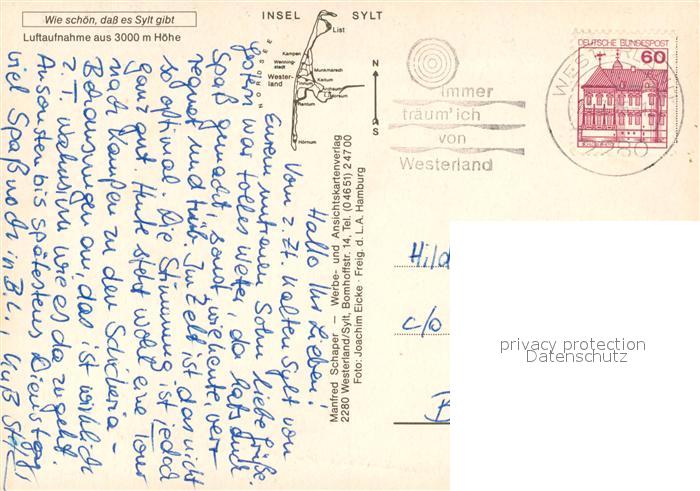 Wie schön, daß es Sylt gibt
Luftaufnahme aus 3000 m Höhe
INSEL SYLT
List
Kampen
Wenningstedt
Munkmarsch
Westerland
Keitum
Archsum
Morsum
Rantum
Hörnum
NORDSEE
N
S
immer
träum' ich
von
Westerland
DEUTSCHE BUNDESPOST
60
Manfred Schaper — Werbe- und Ansichtskartenverlag
2280 Westerland/Sylt, Bomhoffstr. 14, Tel. (04651) 24700
Foto: Joachim Eicke · Freig. d. L.A. Hamburg
Hallo Ihr Lieben!
Vom z. Zt. kalten Sylt von
Eurem untreuen Sohn liebe Grüße.
Gestern war tolles Wetter, da hat's auch
Spaß gemacht, sonst, wie heute, ver-
regnet und trüb. Im Zelt ist das nicht
so optimal. Die Stimmung ist jedoch
ganz gut. Heute steht wohl eine Tour
nach Kampen zu den Schickeria-
Behausungen an, das ist wirklich
z. T. Wahnsinn wie es da zugeht.
Ansonsten bis spätestens Dienstag
viel Spaß noch in B.L., Kuß
Hild
c/o
B
privacy protection
Datenschutz